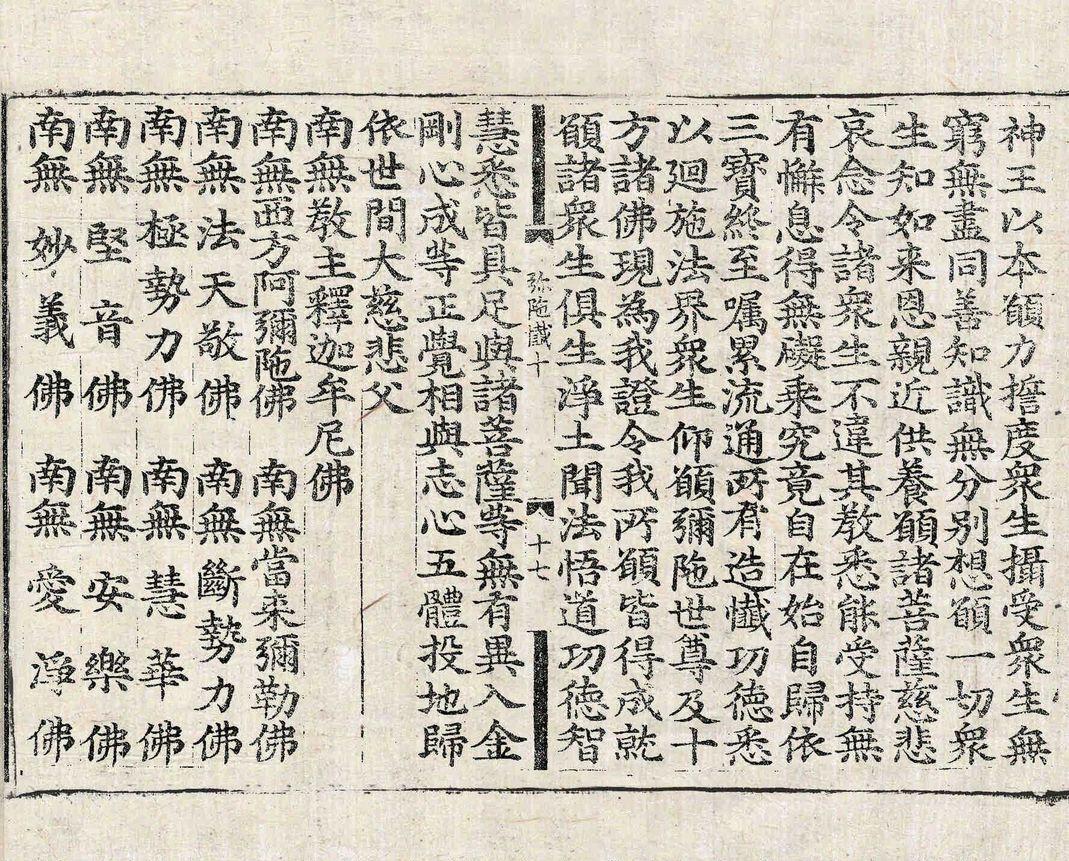 神王以本願力擔度衆生攝受衆生無
窮無盡同善知識無分別想願一切衆
生知如来恩親近供養願諸菩薩慈悲
哀念令諸衆生不違其教悉能受持無
有懈息得無礙乗究竟自在始自歸依
三寳終至嘱累流通所有造懺功德悉
以廻施法界衆生仰願彌陁世尊及十
方諸佛現為我證令我所願皆得成就
願諸衆生俱生淨土聞法悟道功德智
弥陁懺十
十七
慧悉皆具足與諸菩薩等無有異入金
剛心成等正覺相與志心五體投地歸
依世間大慈悲父
南無教主釋迦牟尼佛
南無西方阿彌陁佛　南無當来彌勒佛
南無法天敬佛　南無斷勢力佛
南無極勢力佛　南無慧華佛
南無堅音佛　南無安樂佛
南無妙義佛　南無愛淨佛